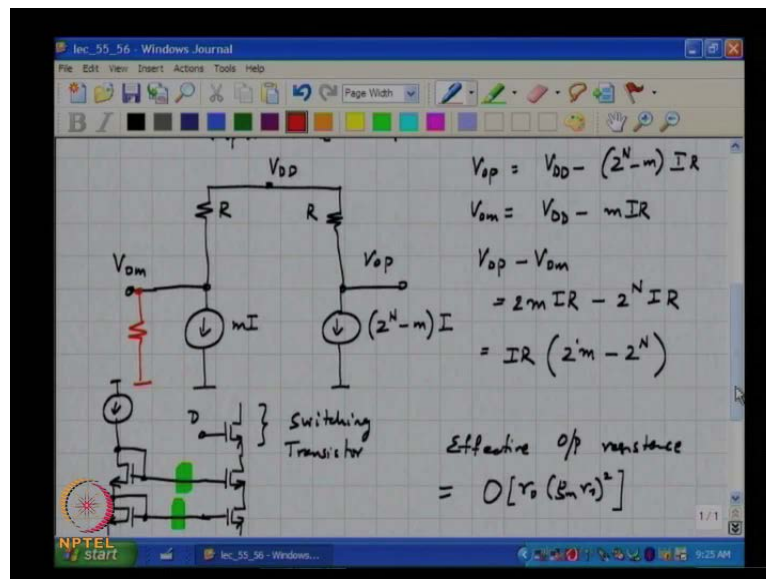 lec_55_56 - Windows Journal
File Edit View Insert Actions Tools Help
Page Width
B I
V_DD
R R
V_om V_op
mI (2^N - m) I
D } Switching
Transistor
V_op = V_DD - (2^N - m) I R
V_om = V_DD - m I R
V_op - V_om
= 2 m I R - 2^N I R
= I R (2m - 2^N)
Effective O/P resistance
= O [r_o (g_m r_o)^2]
1/1
NPTEL
start lec_55_56 - Windows... 9:25 AM